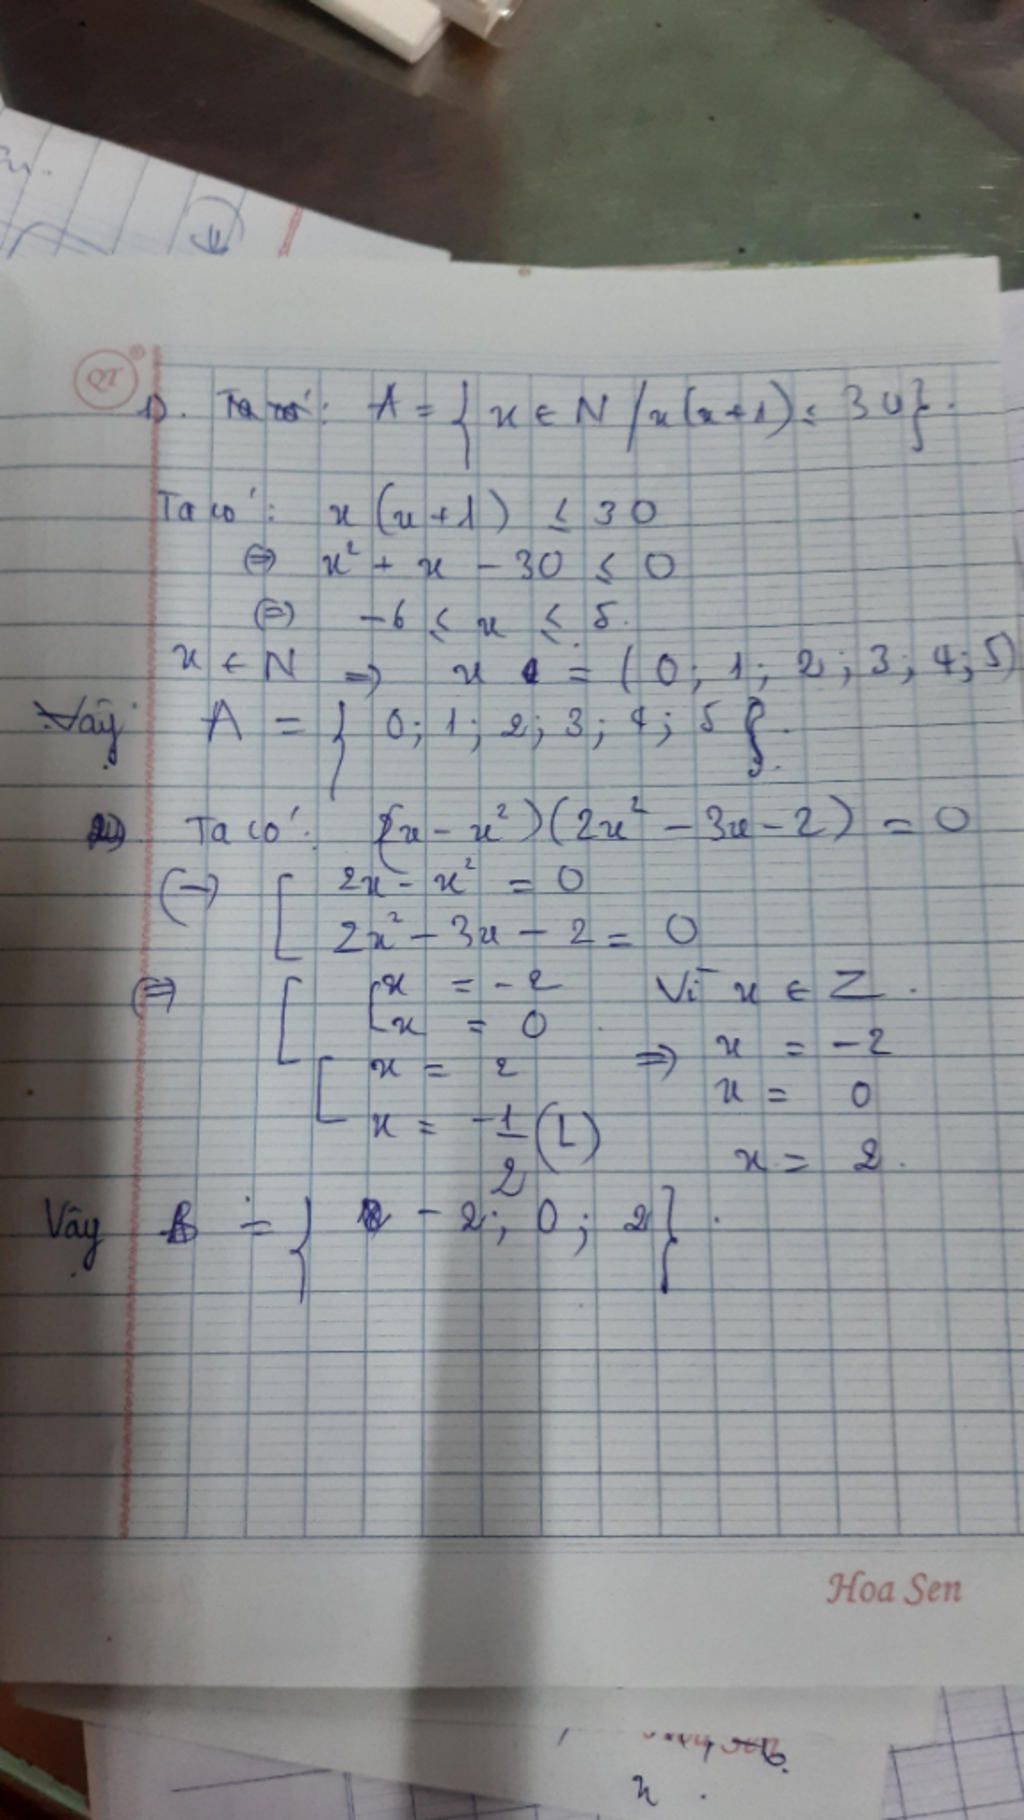 QT
1). Ta có: A = { x ∈ N / x(x+1) ≤ 30}.
Ta có: x(x+1) ≤ 30
⇔ x² + x - 30 ≤ 0
⇔ -6 ≤ x ≤ 5.
x ∈ N ⇒ x = (0; 1; 2; 3; 4; 5)
Vậy A = { 0; 1; 2; 3; 4; 5 }.
2) Ta có: (2x - x²)(2x² - 3x - 2) = 0
(→) [ 2x - x² = 0
2x² - 3x - 2 = 0
⇔ [ [ x = -2 Vì x ∈ Z.
x = 0 ⇒ x = -2
[ x = 2 x = 0
x = -1/2 (L) x = 2.
Vậy B = { -2; 0; 2}.
Hoa Sen
x.